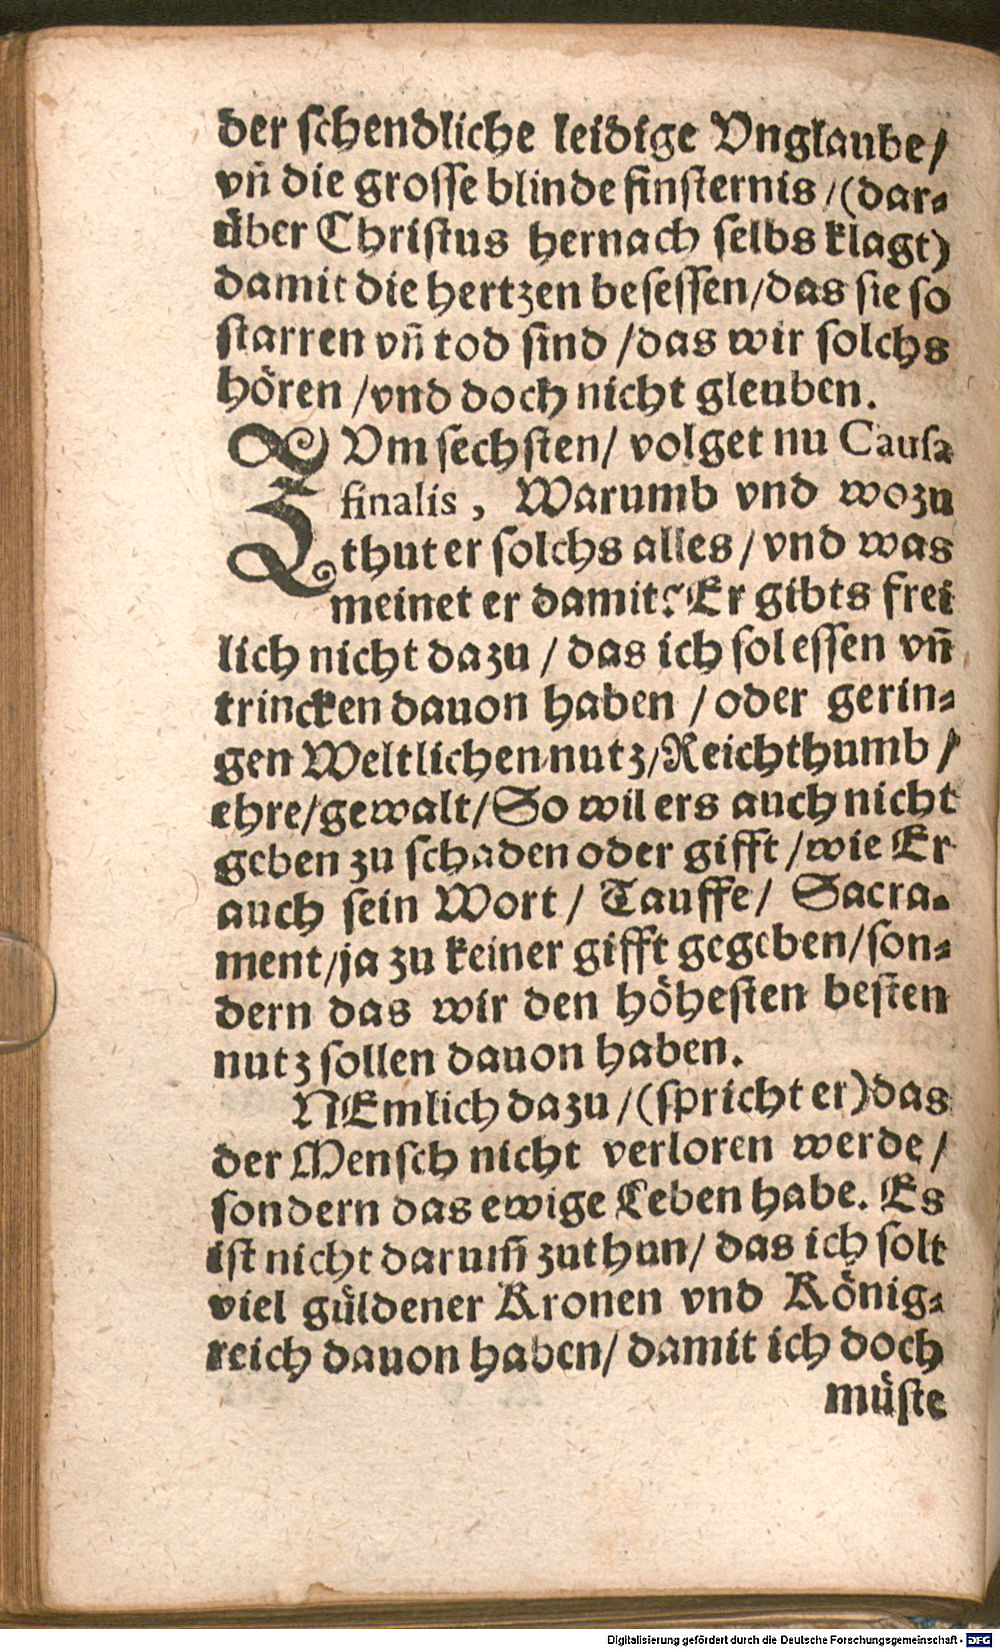 der schendliche leidige Vnglaube/
vñ die grosse blinde finsternis/(dar⸗
über Christus hernach selbs klagt)
damit die hertzen besessen/das sie so
starren vñ tod sind/das wir solchs
hören/vnd doch nicht gleuben.
ZVm sechsten/ volget nu Causa
finalis, Warumb vnd wozu
thut er solchs alles/vnd was
meinet er damit? Er gibts frei
lich nicht dazu/das ich sol essen vñ
trincken dauon haben/oder gerin⸗
gen Weltlichen nutz/Reichthumb/
ehre/gewalt/So wil ers auch nicht
geben zu schaden oder gifft/wie Er
auch sein Wort/ Tauffe/ Sacra⸗
ment/ja zu keiner gifft gegeben/son⸗
dern das wir den höhesten besten
nutz sollen dauon haben.
NEmlich dazu/(spricht er)das
der Mensch nicht verloren werde/
sondern das ewige Leben habe. Es
ist nicht darum̃ zuthun/ das ich solt
viel güldener Kronen vnd König⸗
reich dauon haben/damit ich doch
müste
Digitalisierung gefördert durch die Deutsche Forschungsgemeinschaft - DFG